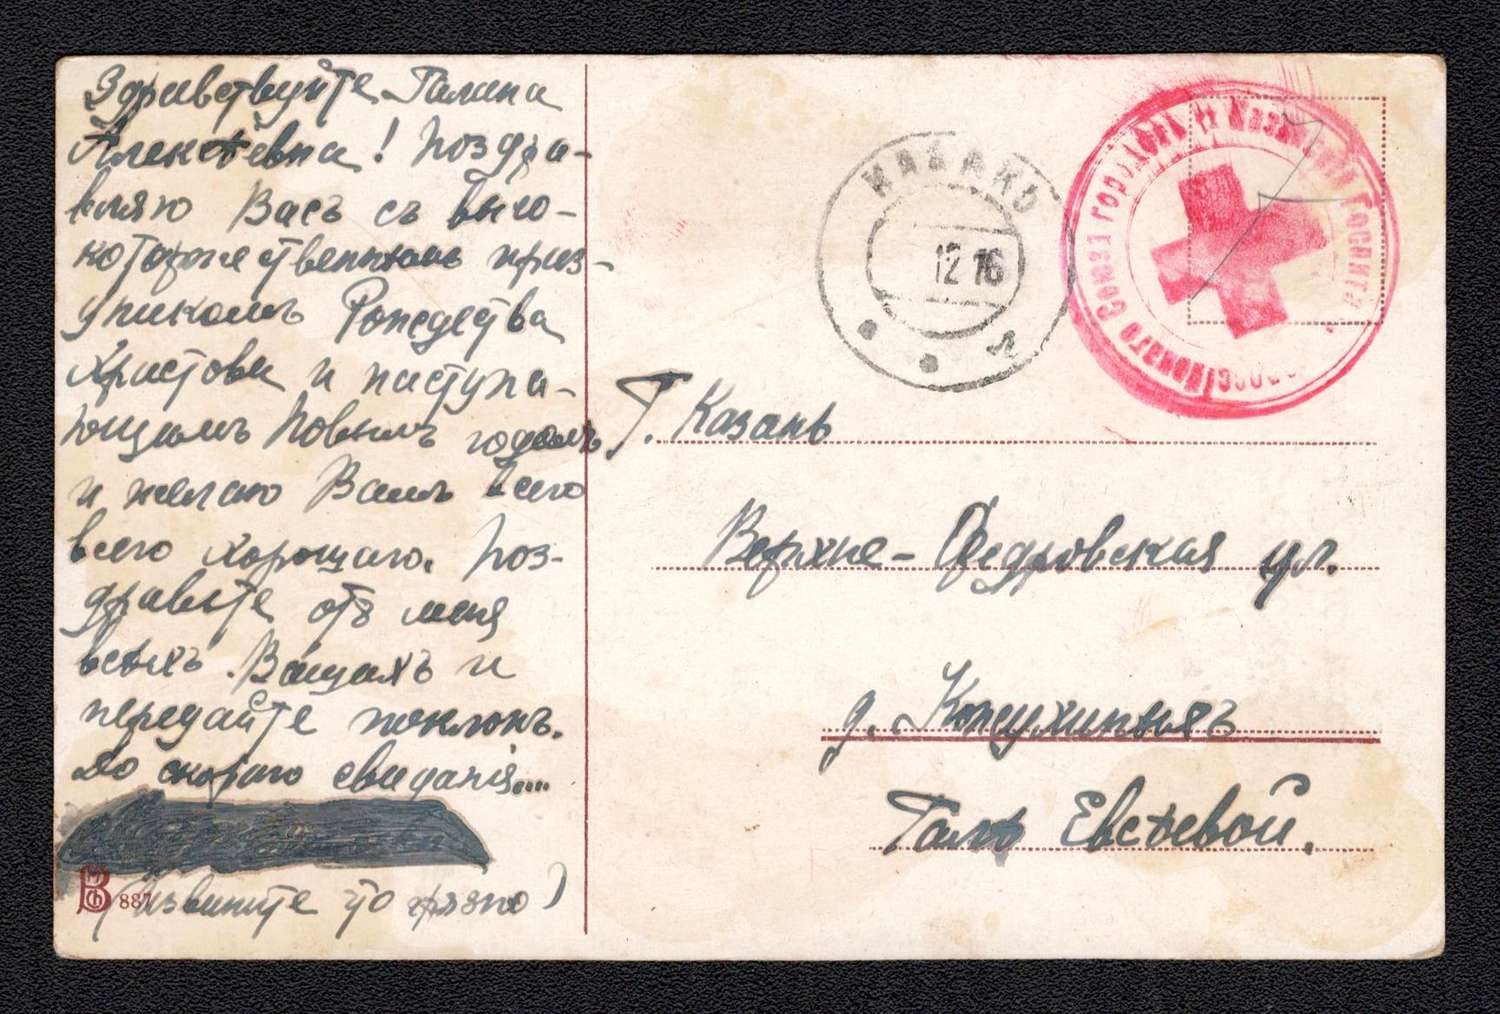 Здравствуйте Галина
Алексѣевна! Поздра-
вляю Васъ съ высо-
которжественнымъ праз-
дникомъ Рождества
Христова и наступа-
ющимъ Новымъ годомъ
и желаю Вамъ всего
всего хорошаго. Поз-
дравьте отъ меня
всѣхъ Вашихъ и
передайте поклонъ.
До скораго свиданія....
(Извините что грязно)
887
КАЗАНЬ
12 16
Союза городовъ
Г. Казань
Верхне-Федровская ул.
д. Кожухиныхъ
Галѣ Евсѣевой.